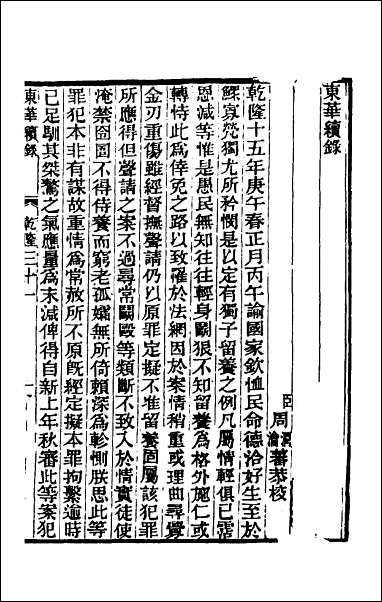 東華續錄
臣周潤蕃瀹蕃恭校
乾隆十五年庚午春正月丙午諭國家欽恤民命德洽好生至於
鰥寡煢獨尤所矜憫是以定有獨子留養之例凡屬情輕俱已霑
恩減等惟是愚民無知往往輕身鬬狠不知留養為格外施仁或
轉恃此為倖免之路以致罹於法網因於案情稍重或理曲尋釁
金刃重傷雖經督撫聲請仍以原罪定擬不准留養固屬該犯罪
所應得但聲請之案不過尋常鬬毆等類斷不致入於情實徒使
淹禁囹圄不得侍養而窮老孤孀無所倚賴深為軫惻朕思此等
罪犯本非有謀故重情為常赦所不原既經定擬本罪拘繫逾時
已足馴其桀驁之氣應量為末減俾得自新上年秋審此等案犯
東華續錄 乾隆三十一 一